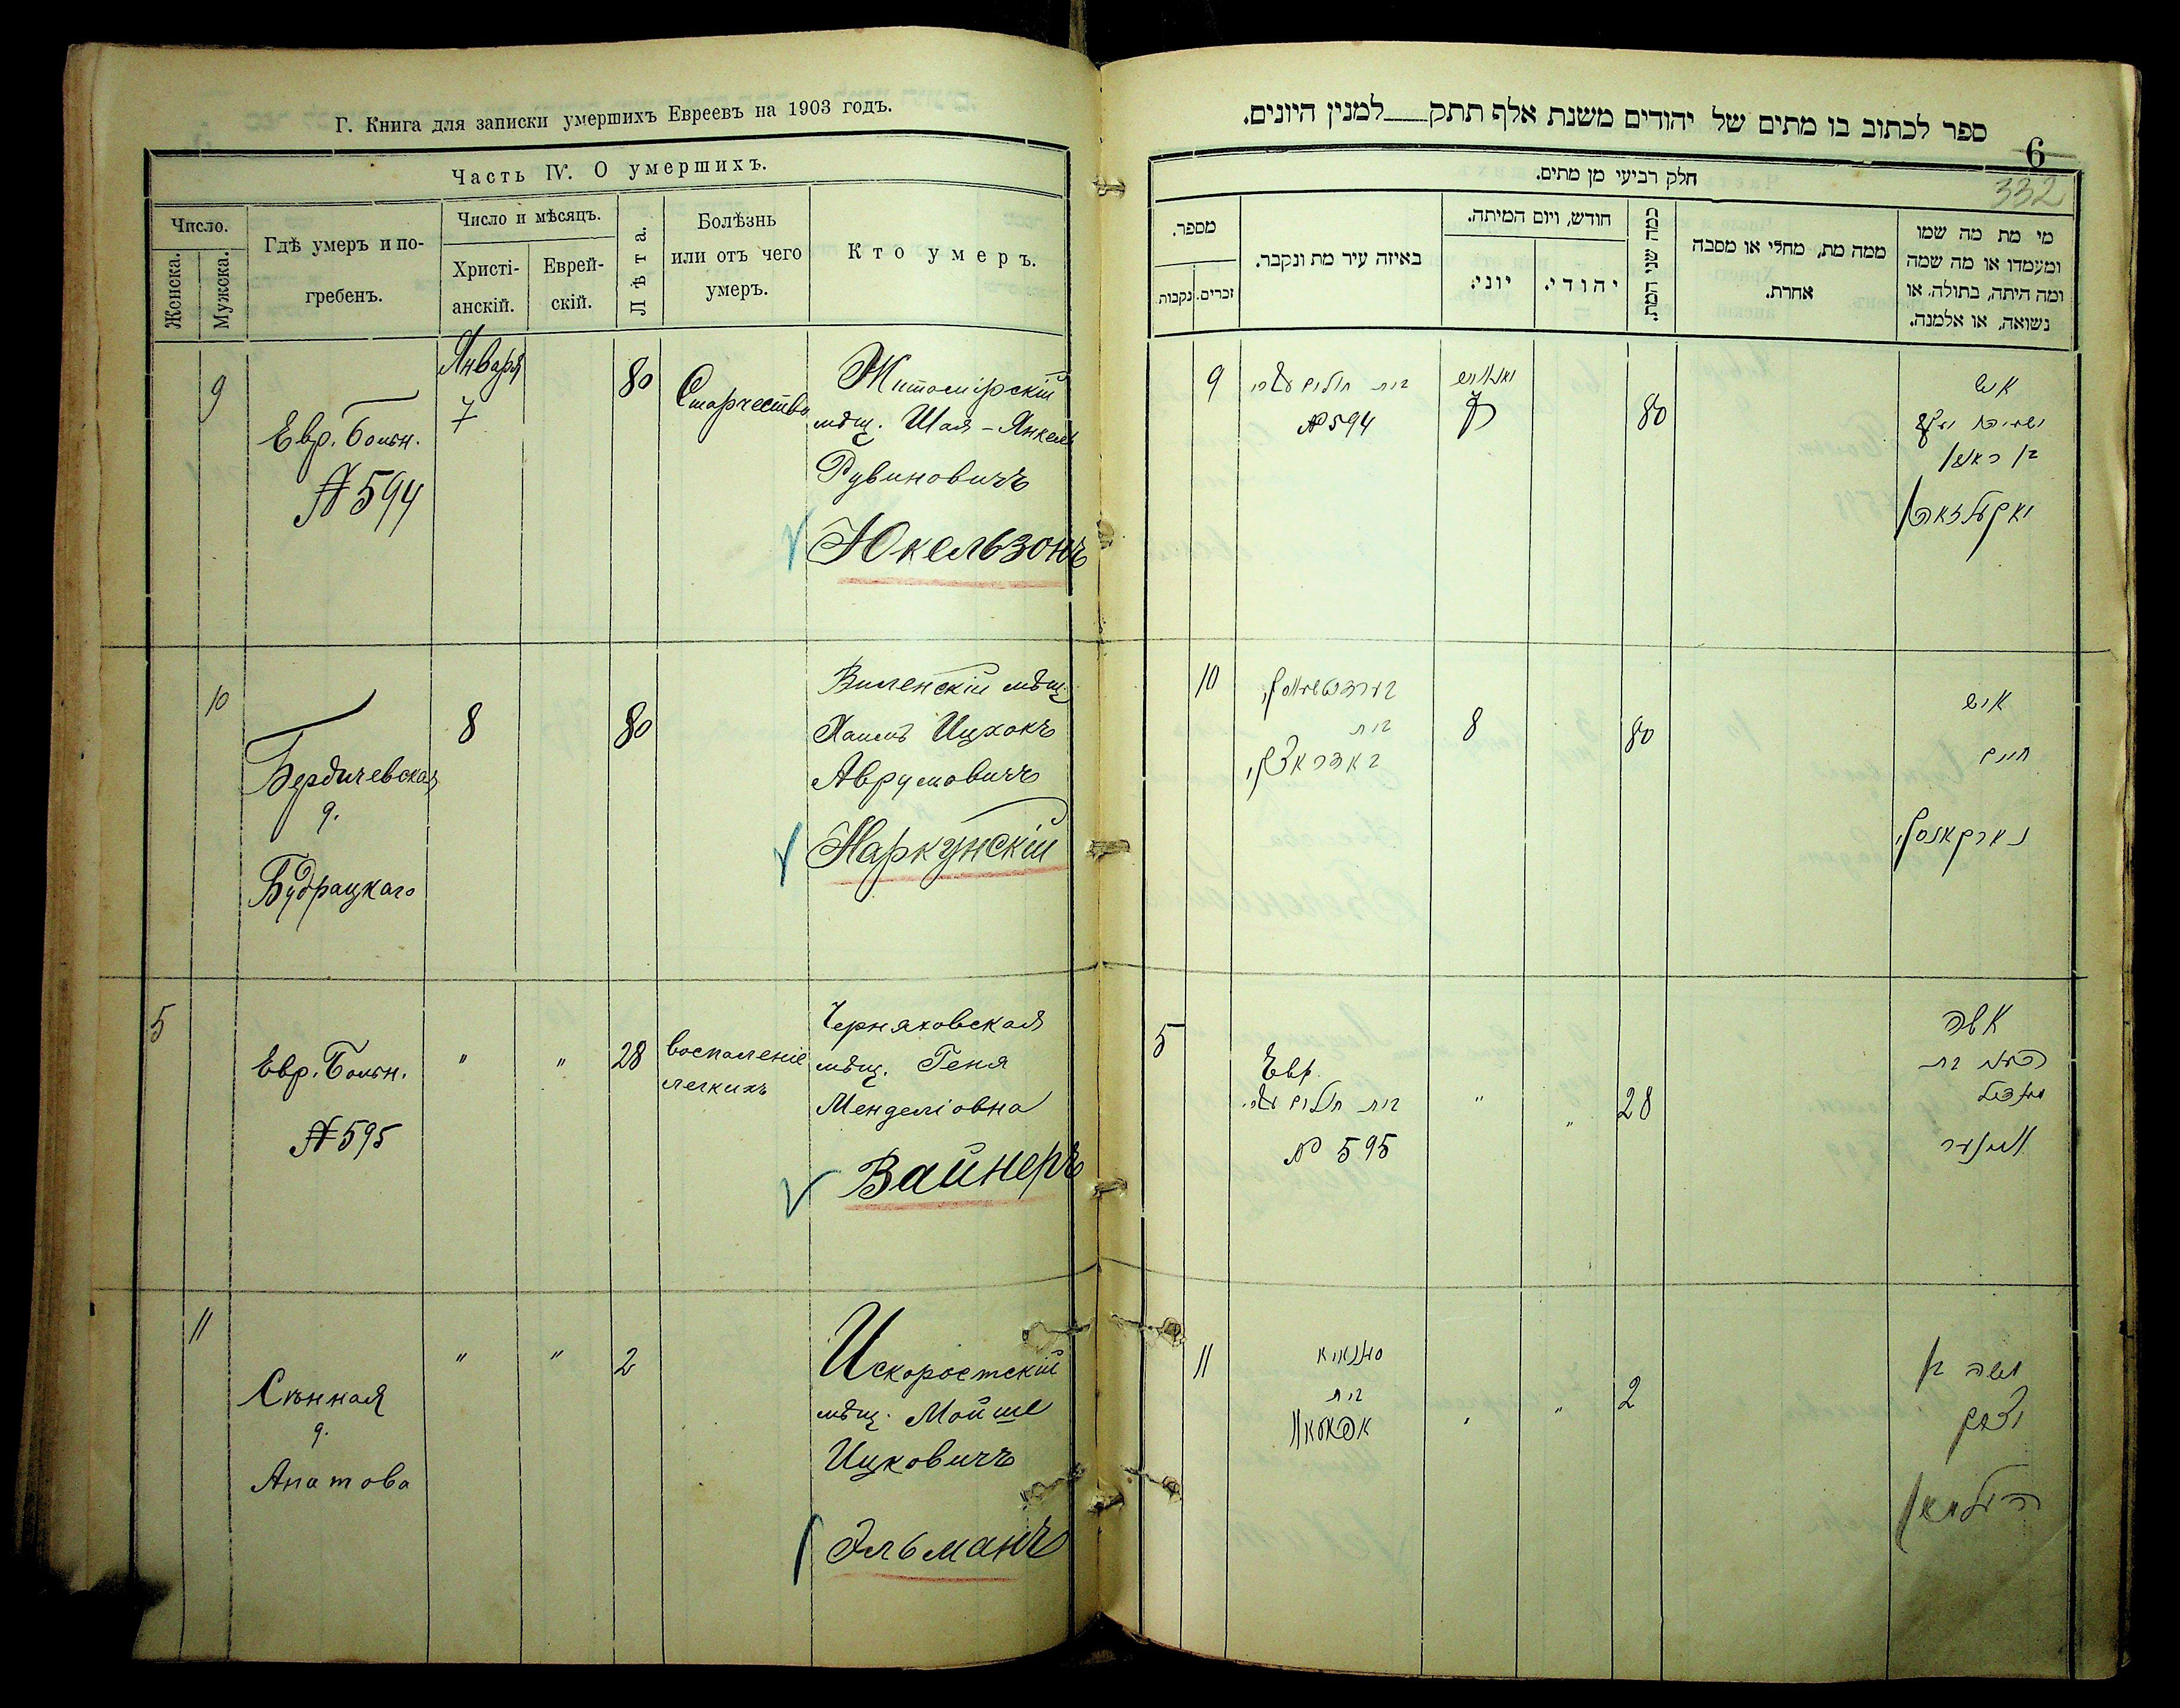 Г. Книга для записки умершихъ Евреевъ на 1903 годъ.
Часть IV. О умершихъ.
Число.
Женска.
Мужска.
Гдѣ умеръ и по-
гребенъ.
Число и мѣсяцъ.
Христі-
анскій.
Еврей-
скій.
Лѣта.
Болѣзнь
или отъ чего
умеръ.
Кто умеръ.
9
Евр. Больн.
№ 594
Января
7
80
Старчество
Житомірскій
мѣщ. Шая-Янкель
Рувиновичъ
Юкельзонъ
10
Бердичевская
д.
Будрацкаго
8
80
Виленскій мѣщ.
Хаимъ Ицхокъ
Аврумовичъ
Наркунскій
5
Евр. Больн.
№ 595
"
"
28
воспаленіе
легкихъ
Черняховская
мѣщ. Геня
Менделіовна
Вайнеръ
11
Сѣнная
д.
Апатова
"
"
2
Искоростскій
мѣщ. Мойше
Ицковичъ
Эльманъ
ספר לכתוב בו מתים של יהודים משנת אלף תתק למנין היונים.
6
332
חלק רביעי מן מתים.
מספר.
נקבות
זכרים.
באיזה עיר מת ונקבר.
חודש, ויום המיתה.
יוני.
יהודי.
כמה שני המת.
ממה מת, מחלי או מסבה
אחרת.
מי מת מה שמו
ומעמדו או מה שמה
ומה היתה, בתולה, או
נשואה, או אלמנה.
9
בית חולים
№ 594
7
80
איש
בן ראובן
10
בית
8
80
איש
חיים
5
Евр.
בית חולים
№ 595
"
"
28
אשה
בת
11
בית
"
"
2
משה בן
יצחק